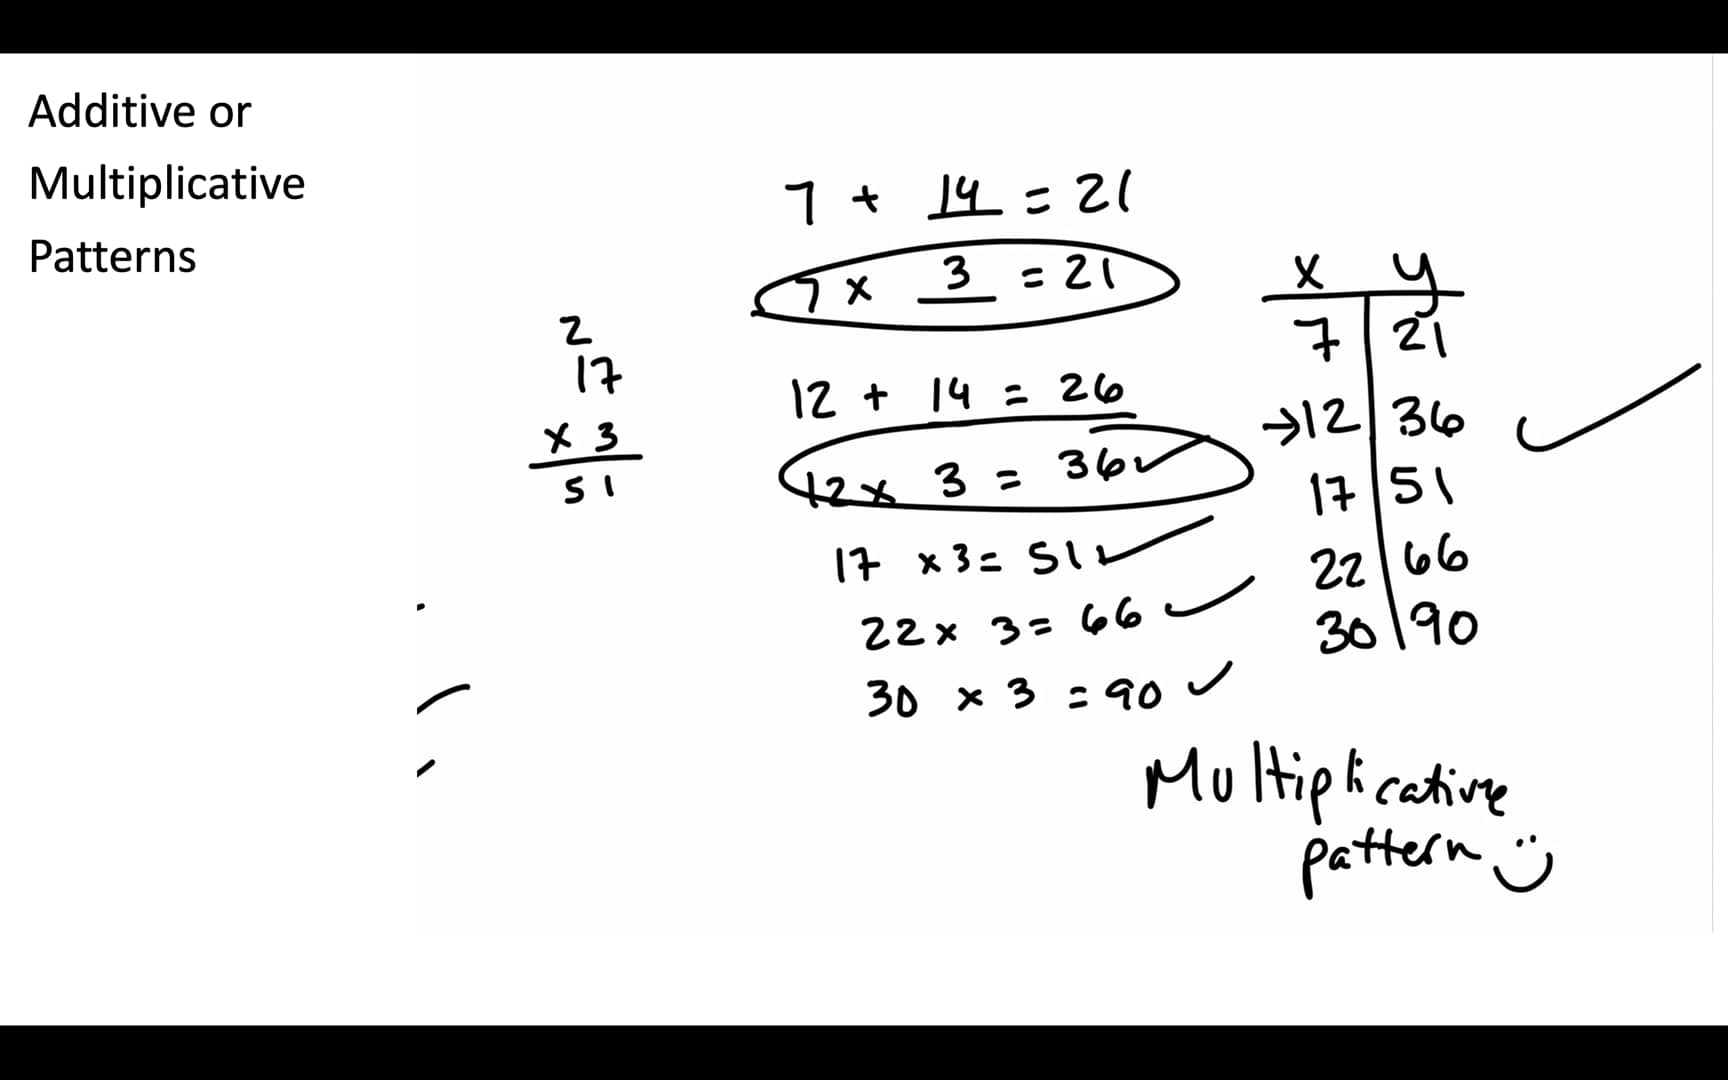 Additive or
Multiplicative
Patterns
7 + 14 = 21
7 x 3 = 21
12 + 14 = 26
12 x 3 = 36
17 x 3 = 51
22 x 3 = 66
30 x 3 = 90
2
17
x 3
51
x y
7 21
→12 36
17 51
22 66
30 90
Multiplicative
pattern